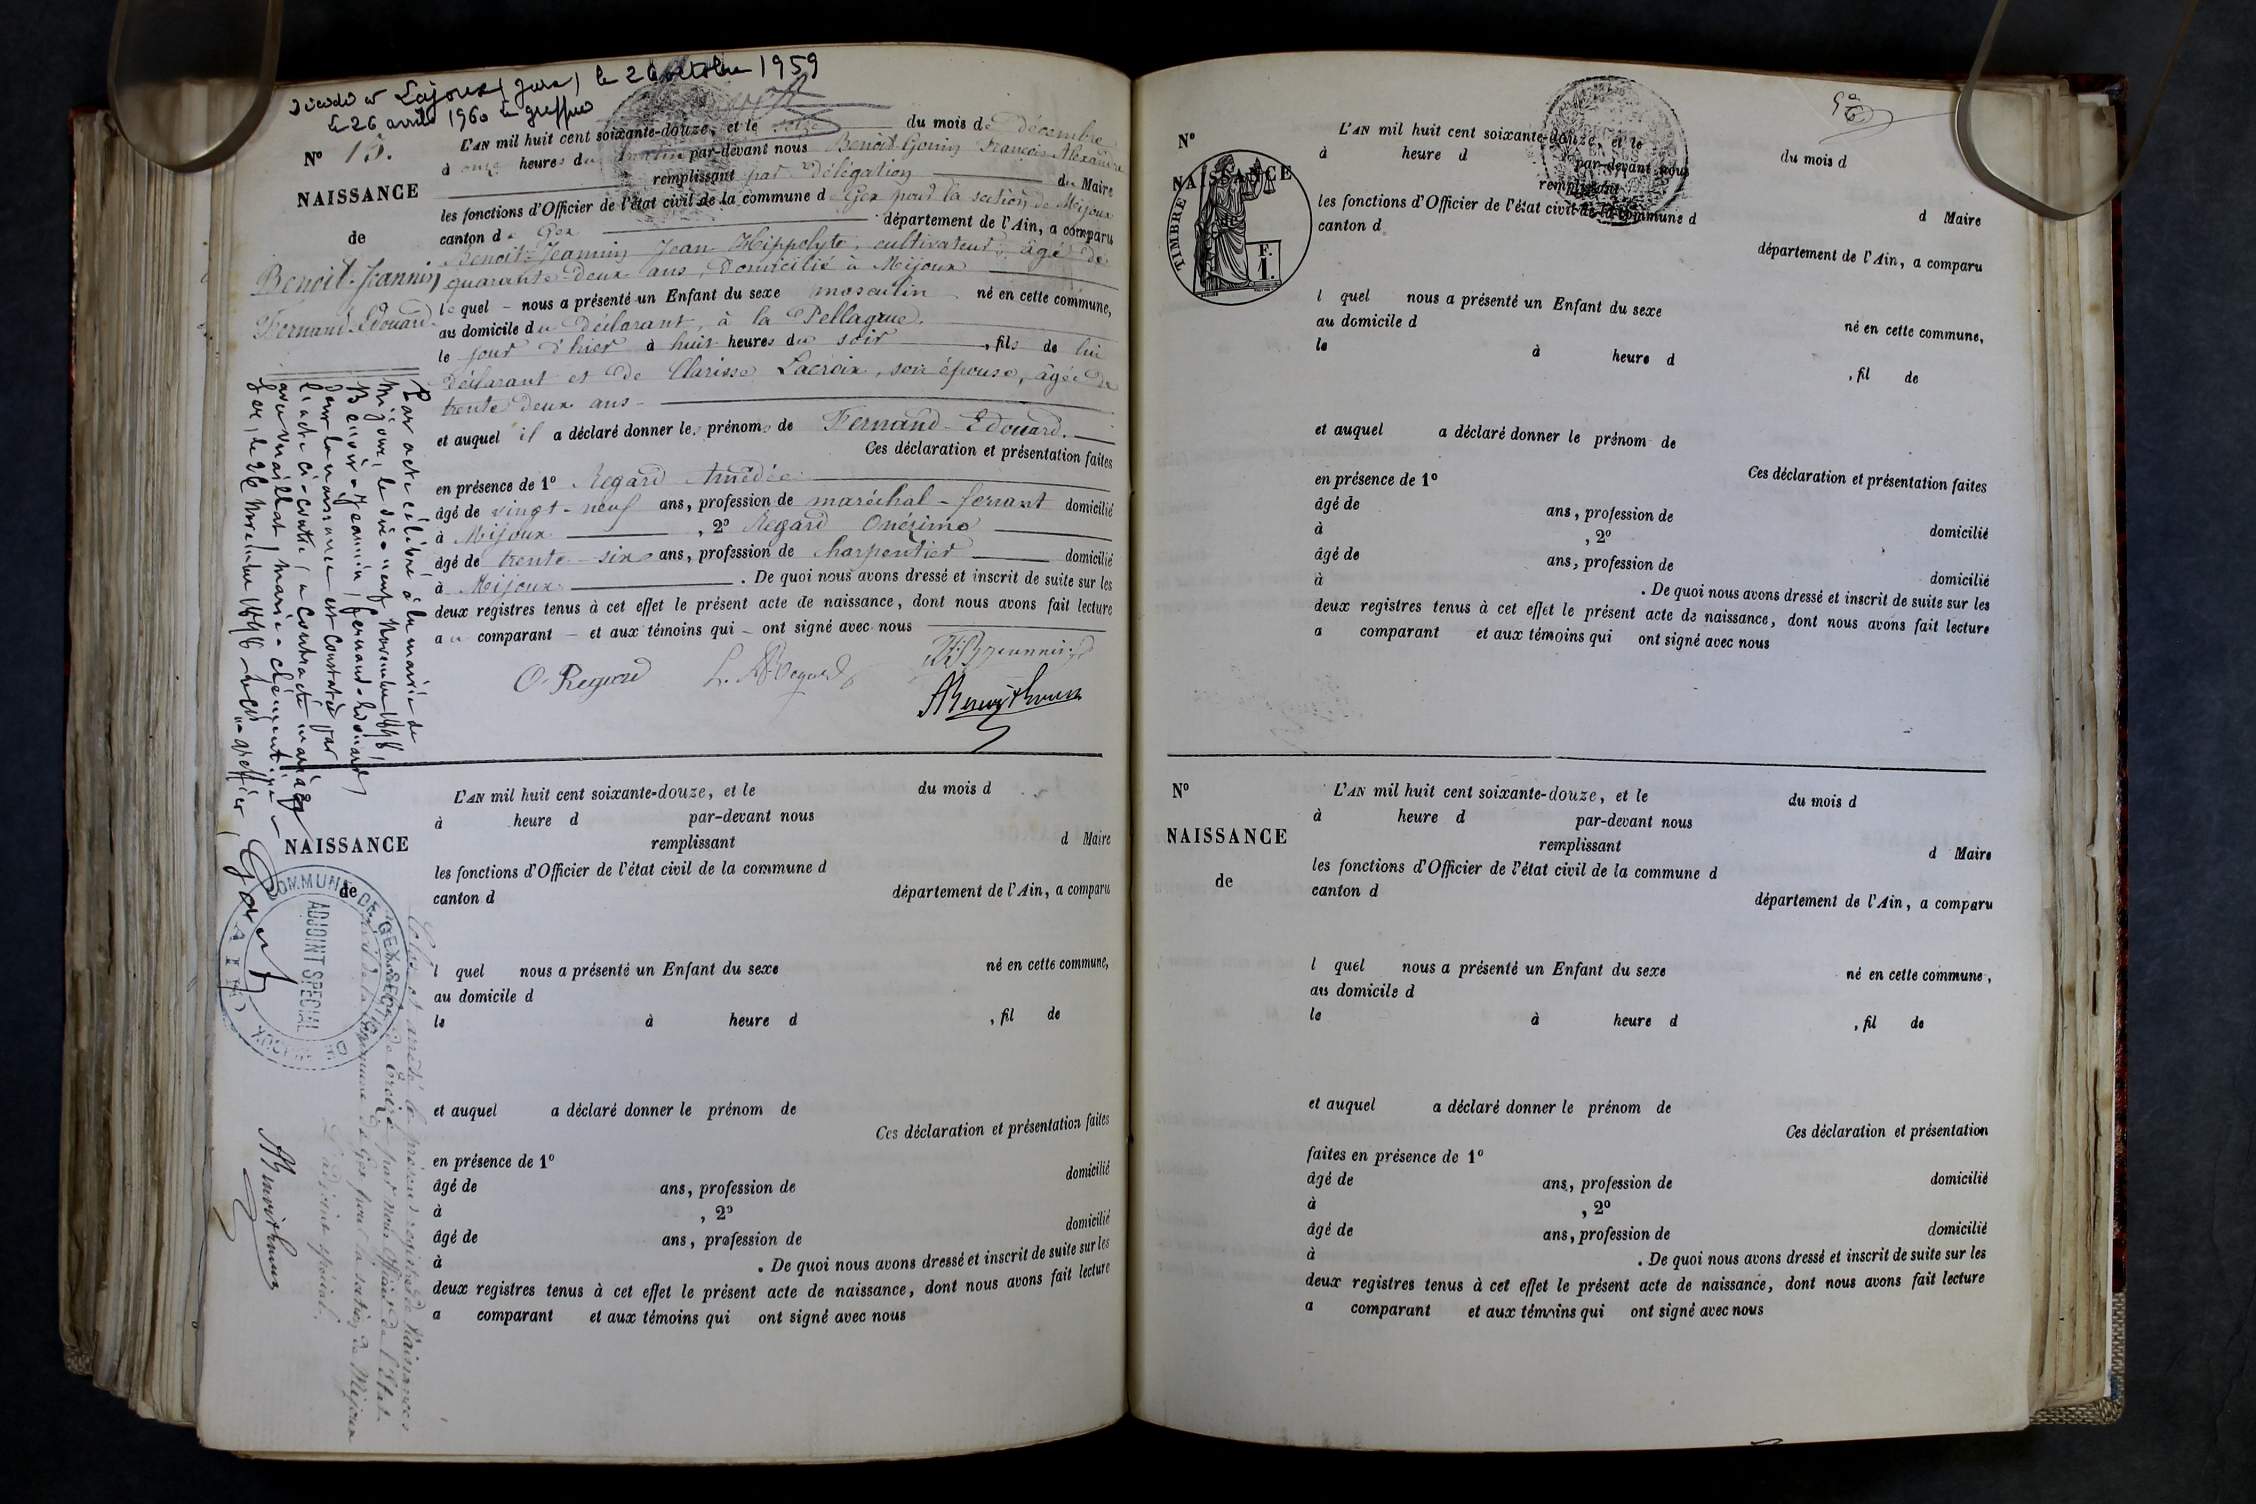 décédé à Lajoux (Jura) le 2 octobre 1959
le 26 avril 1960 le greffier
N° 15.
NAISSANCE
de
Benoit-Jeannin
Fernand Edouard.
L'AN mil huit cent soixante-douze, et le seize du mois de décembre
à onze heures du matin par-devant nous Benoit-Gonin François Alexandre
remplissant par délégation du Maire
les fonctions d'Officier de l'état civil de la commune de Gex pour la section de Mijoux
canton de Gex département de l'Ain, a comparu
Benoit-Jeannin Jean Hippolyte, cultivateur, âgé de
quarante-deux ans, domicilié à Mijoux
lequel nous a présenté un Enfant du sexe masculin né en cette commune,
au domicile du déclarant, à la Pellagrue,
le jour d'hier à huit heures du soir, fils de lui
déclarant et de Clarisse Lacroix, son épouse, âgée de
trente deux ans
et auquel il a déclaré donner les prénoms de Fernand-Edouard.
Ces déclaration et présentation faites
en présence de 1° Regard Amédée
âgé de vingt-neuf ans, profession de maréchal-ferrant domicilié
à Mijoux, 2° Regard Onézime
âgé de trente-six ans, profession de charpentier domicilié
à Mijoux. De quoi nous avons dressé et inscrit de suite sur les
deux registres tenus à cet effet le présent acte de naissance, dont nous avons fait lecture
au comparant et aux témoins qui ont signé avec nous
O. Regard
Par acte célébré à la mairie de
Mijoux, le dix-neuf Novembre 1898
Benoit-Jeannin, Fernand-Edouard
dont la naissance est constatée par
l'acte ci-contre, a contracté mariage
avec Maillat, Marie-Clémentine
Gex, le 26 Novembre 1898 Le greffier,
COMMUNE DE GEX SECTION DE MIJOUX
ADJOINT SPECIAL
(AIN)
Clos et arrêté le présent registre de Naissances
par nous Officier de l'Etat
civil de la commune de Gex pour la section de Mijoux
L'adjoint spécial.
NAISSANCE
de
L'AN mil huit cent soixante-douze, et le du mois d
à heure d par-devant nous
remplissant d Maire
les fonctions d'Officier de l'état civil de la commune d
canton d département de l'Ain, a comparu
l quel nous a présenté un Enfant du sexe né en cette commune,
au domicile d
le à heure d , fil de
et auquel a déclaré donner le prénom de
Ces déclaration et présentation faites
en présence de 1°
âgé de ans, profession de domicilié
à , 2°
âgé de ans, profession de domicilié
à . De quoi nous avons dressé et inscrit de suite sur les
deux registres tenus à cet effet le présent acte de naissance, dont nous avons fait lecture
a comparant et aux témoins qui ont signé avec nous
N°
NAISSANCE
de
TIMBRE
F. 1.
L'AN mil huit cent soixante-douze, et le du mois d
à heure d par-devant nous
remplissant d Maire
les fonctions d'Officier de l'état civil de la commune d
canton d département de l'Ain, a comparu
l quel nous a présenté un Enfant du sexe né en cette commune,
au domicile d
le à heure d , fil de
et auquel a déclaré donner le prénom de
Ces déclaration et présentation faites
en présence de 1°
âgé de ans, profession de domicilié
à , 2°
âgé de ans, profession de domicilié
à . De quoi nous avons dressé et inscrit de suite sur les
deux registres tenus à cet effet le présent acte de naissance, dont nous avons fait lecture
a comparant et aux témoins qui ont signé avec nous
N°
NAISSANCE
de
L'AN mil huit cent soixante-douze, et le du mois d
à heure d par-devant nous
remplissant d Maire
les fonctions d'Officier de l'état civil de la commune d
canton d département de l'Ain, a comparu
l quel nous a présenté un Enfant du sexe né en cette commune,
au domicile d
le à heure d , fil de
et auquel a déclaré donner le prénom de
Ces déclaration et présentation
faites en présence de 1°
âgé de ans, profession de domicilié
à , 2°
âgé de ans, profession de domicilié
à . De quoi nous avons dressé et inscrit de suite sur les
deux registres tenus à cet effet le présent acte de naissance, dont nous avons fait lecture
a comparant et aux témoins qui ont signé avec nous